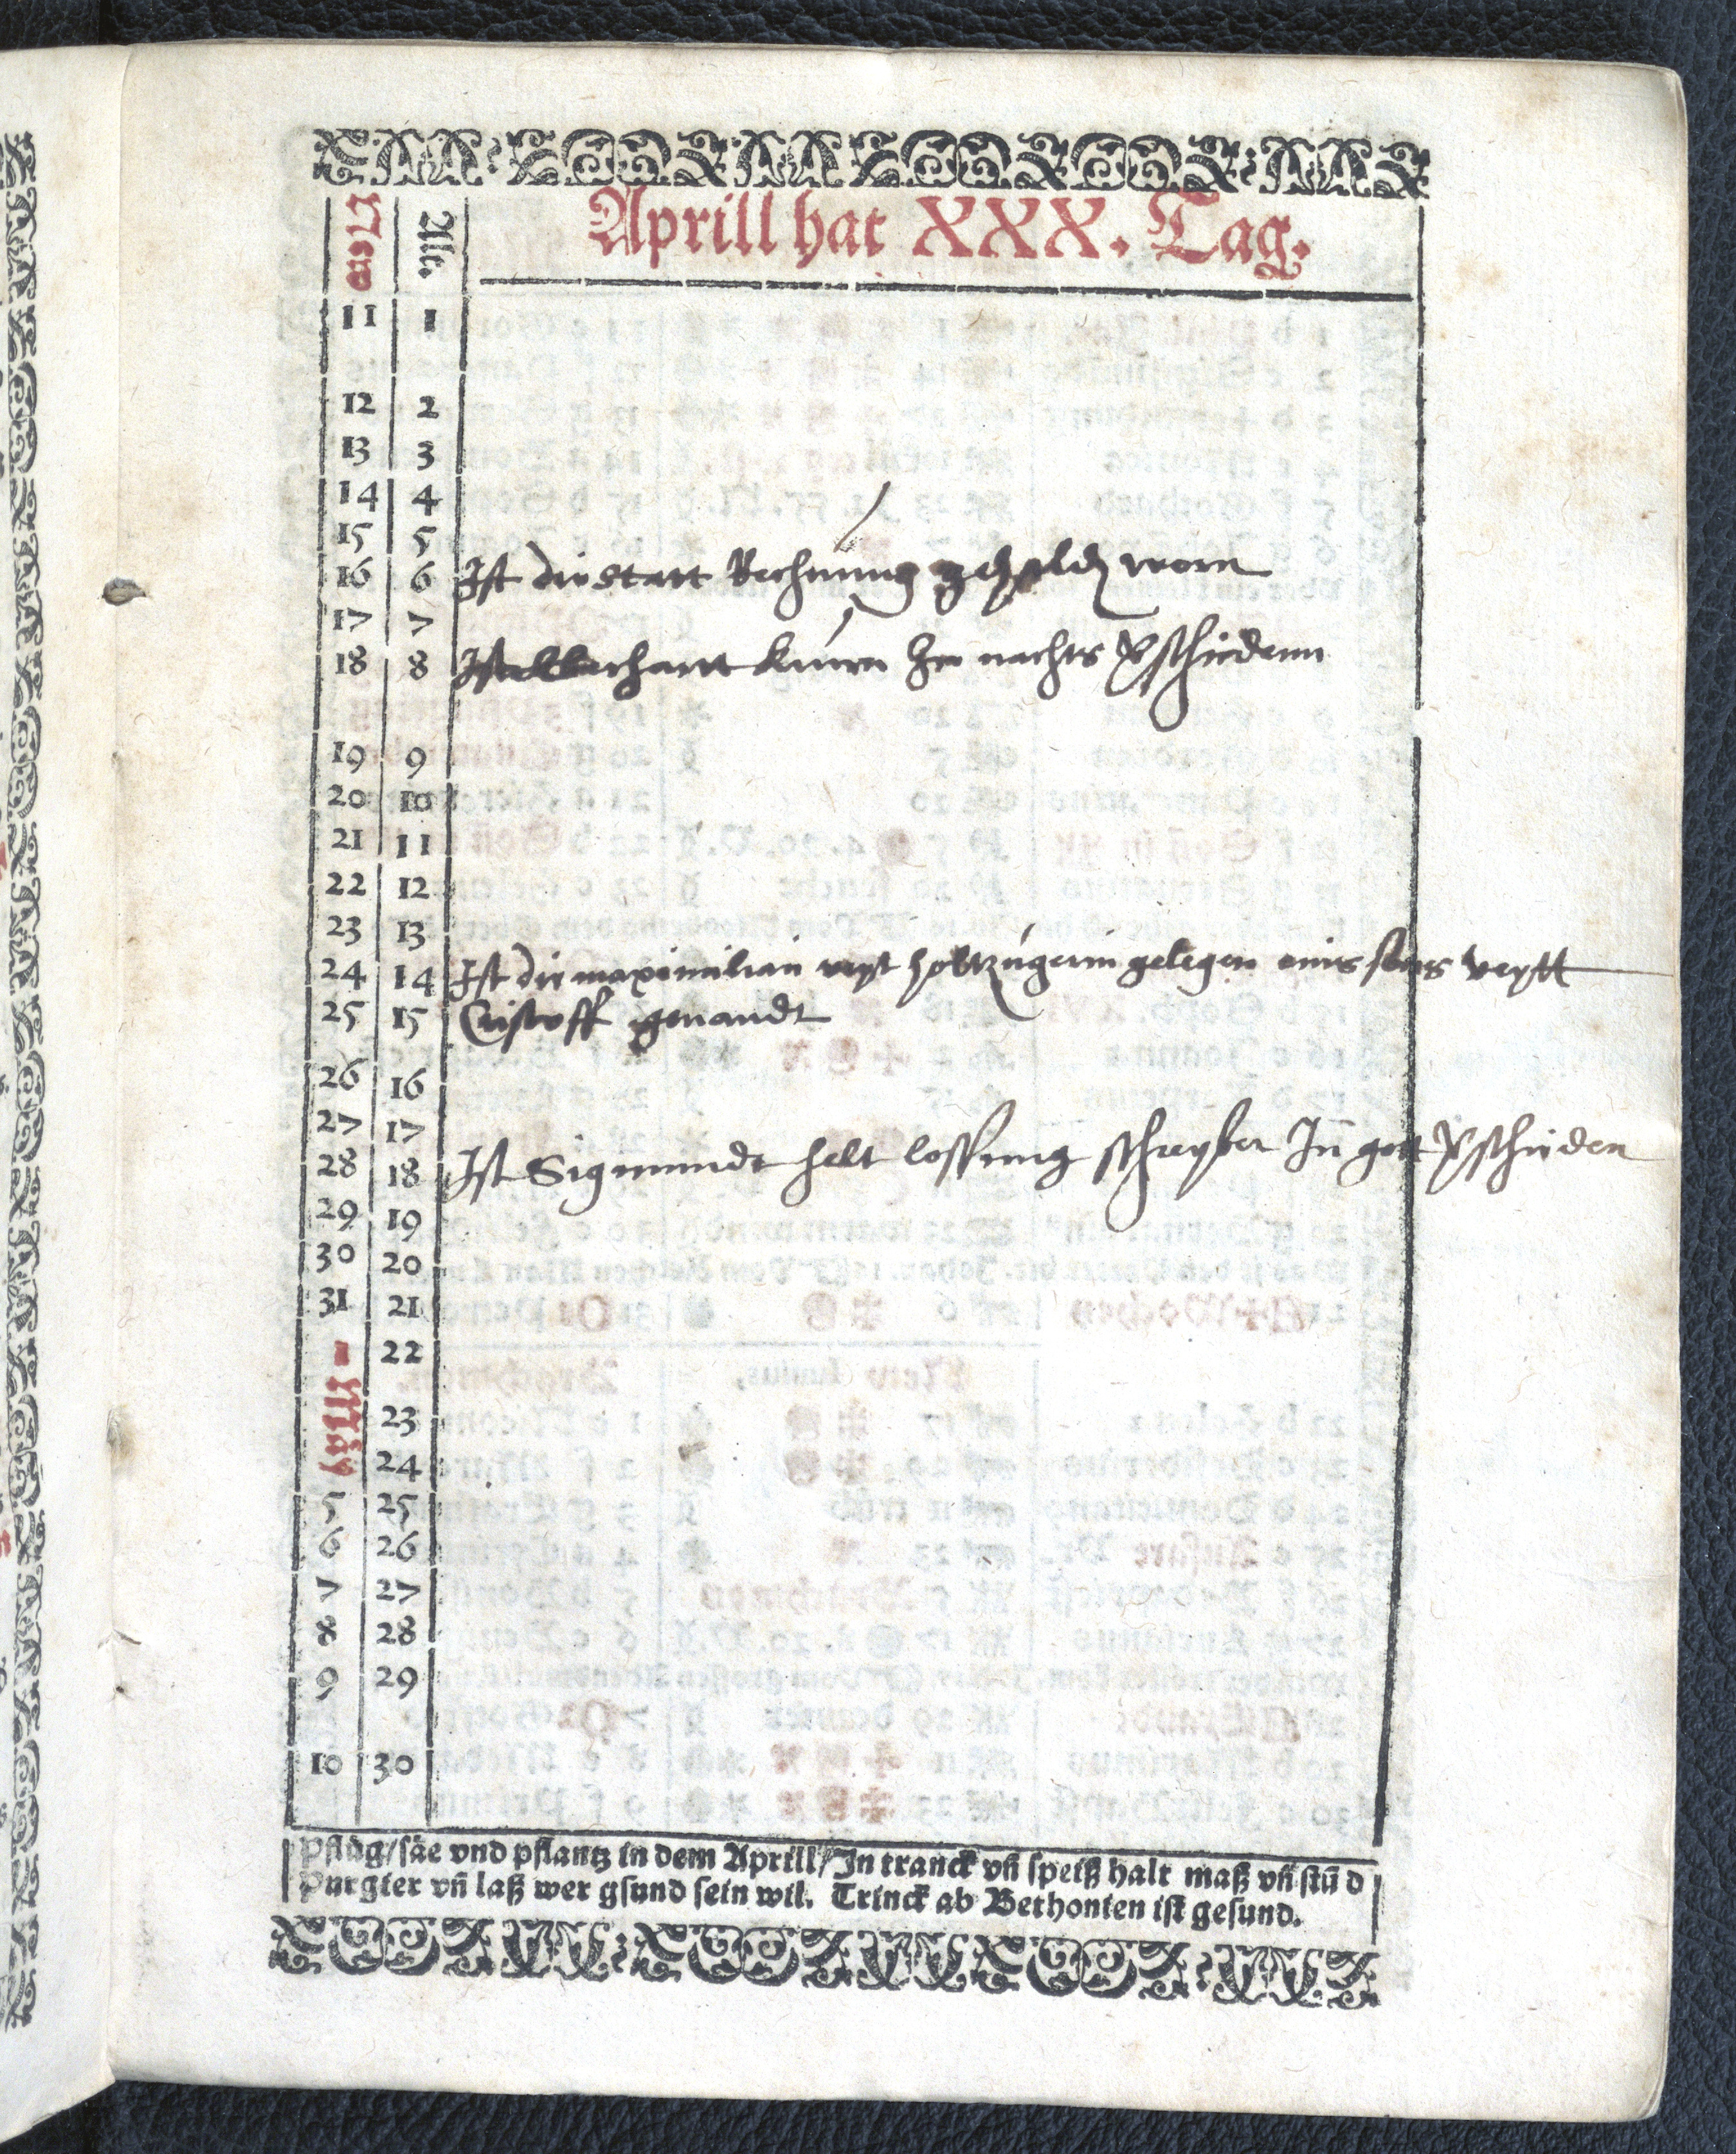 Aprill hat XXX. Tag.
New Alt.
11 1
12 2
13 3
14 4
15 5
16 6 Ist die statt Rechnung gehalden worn
17 7
18 8 Ist eberhartt kürn zu nachts verschiedenn
19 9
20 10
21 11
22 12
23 13
24 14 Ist die maximilian veyt holtzügerin gelegen eines suns veytt
25 15 Cristoff genandt
26 16
27 17
28 18 Ist Sigmundt helt lossung schreyber In gott verschieden
29 19
30 20
31 21
22
May
23
24
5 25
6 26
7 27
8 28
9 29
10 30
Pflüg/säe vnd pflantz in dem Aprill/In tranck vñ speiß halt maß vñ stũd
Purgier vñ laß wer gsund sein wil. Trinck ab Bethonien ist gesund.